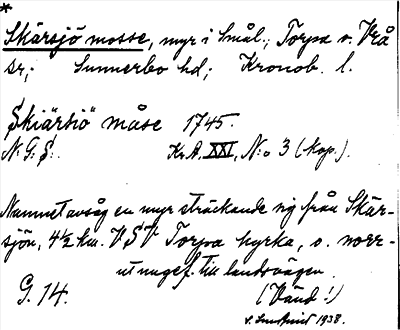 *
Skärsjö mosse, myr i Smål.; Torpa o. Vrå
sr; Sunnerbo hd; Kronob. l.
"Skiärsiö" måse 1745.
N:G:S:. Kr. A. XXI, N:o 3 (kop.).
Namnet avsåg en myr sträckande sig från Skär-
sjön, 4½ km. VSV Torpa kyrka, o. norr-
ut ungef. till landsvägen.
G. 14. (Vänd!)
1938.